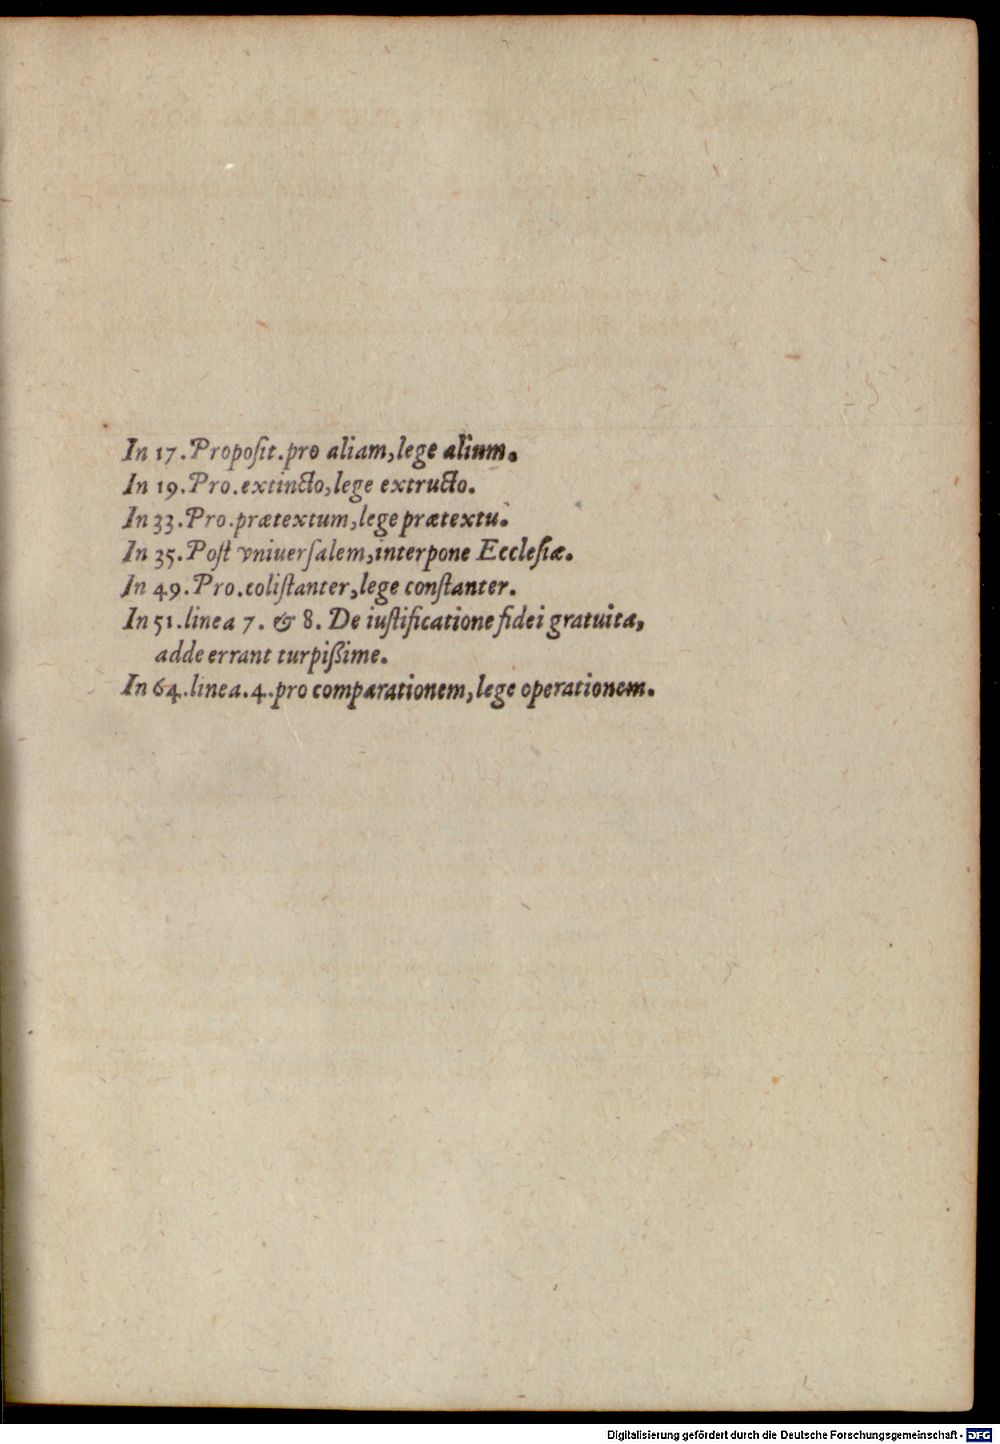 In 17. Propoſit. pro aliam, lege alium.
In 19. Pro. extincto, lege extructo.
In 33. Pro. prætextum, lege prætextu.
In 35. Poſt vniuerſalem, interpone Eccleſiæ.
In 49. Pro. coliſtanter, lege conſtanter.
In 51. linea 7. & 8. De iuſtificatione fidei gratuita,
adde errant turpißime.
In 64. linea. 4. pro comparationem, lege operationem.
Digitalisierung gefördert durch die Deutsche Forschungsgemeinschaft - DFG